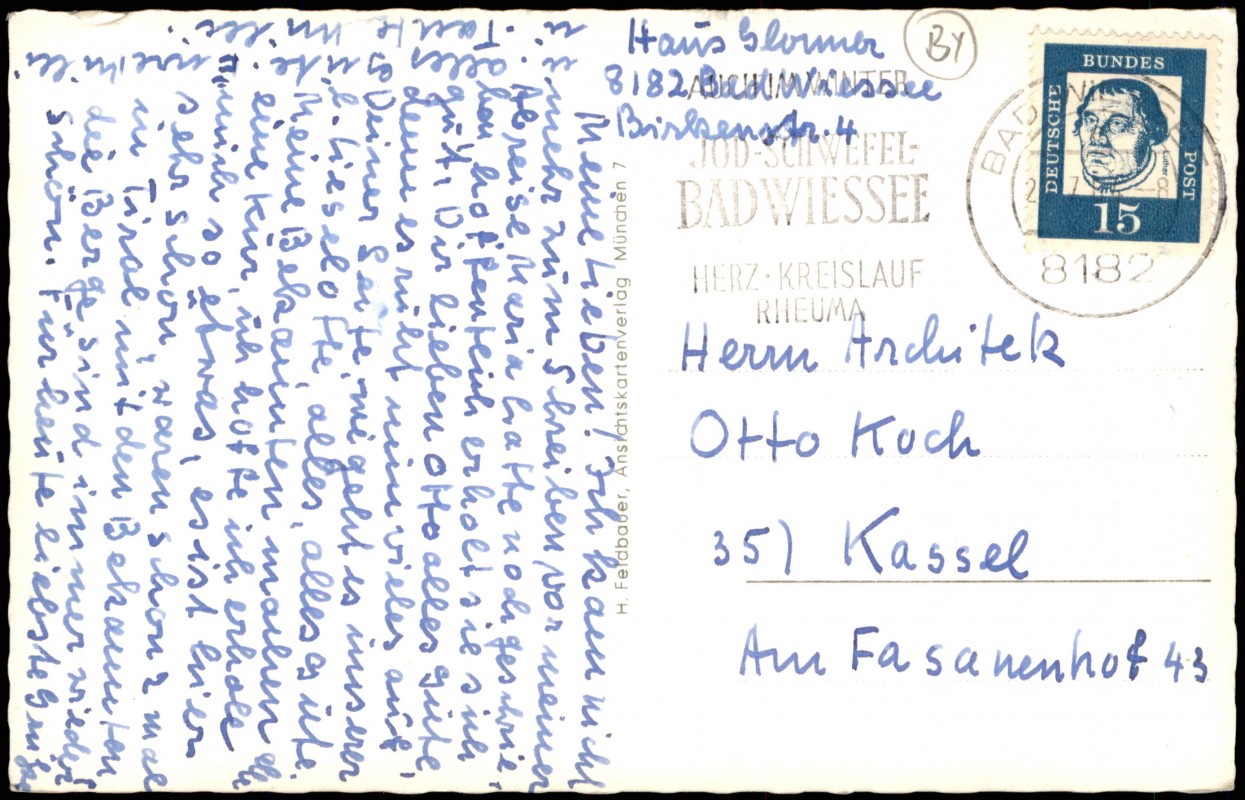 Haus Glonner
8182 Bad Wiessee
Birkenstr. 4
BY
AUCH IM WINTER
JOD-SCHWEFEL-
BAD WIESSEE
HERZ · KREISLAUF
RHEUMA
BAD WIESSEE
8182
BUNDES
DEUTSCHE
POST
Luther
15
Herrn Architek
Otto Koch
35) Kassel
Am Fasanenhof 43
H. Feldbauer, Ansichtskartenverlag München 7
Meine Lieben! Ich kam nicht
mehr zum Schreiben vor meiner
Abreise. Maria hatte noch geschrie,
ben, hoffentlich erholt sie sich
gut. Dir lieben Otto alles gute
denn es ruht nun vieles auf
Deiner Seite, wie geht es unserer
l. Lieselotte, alles, alles gute.
Meine Bekannten machen
eine Kur, ich hoffe ich erhole
mich so etwas, es ist hier
sehr schön, waren schon 2 mal
in Tirol mit den Bekannten
die Berge sind immer wieder
schön. Für heute liebste Grüße
u. alles gute
Tante Milli